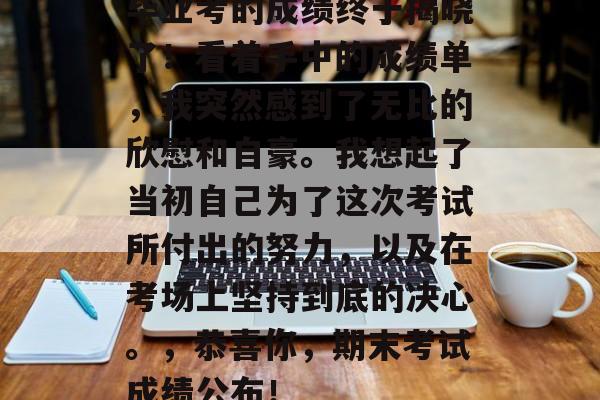 毕业考的成绩终于揭晓
了！看着手中的成绩单
，我突然感到了无比的
欣慰和自豪。我想起了
当初自己为了这次考试
所付出的努力，以及在
考场上坚持到底的决心
。，恭喜你，期末考试
成绩公布！